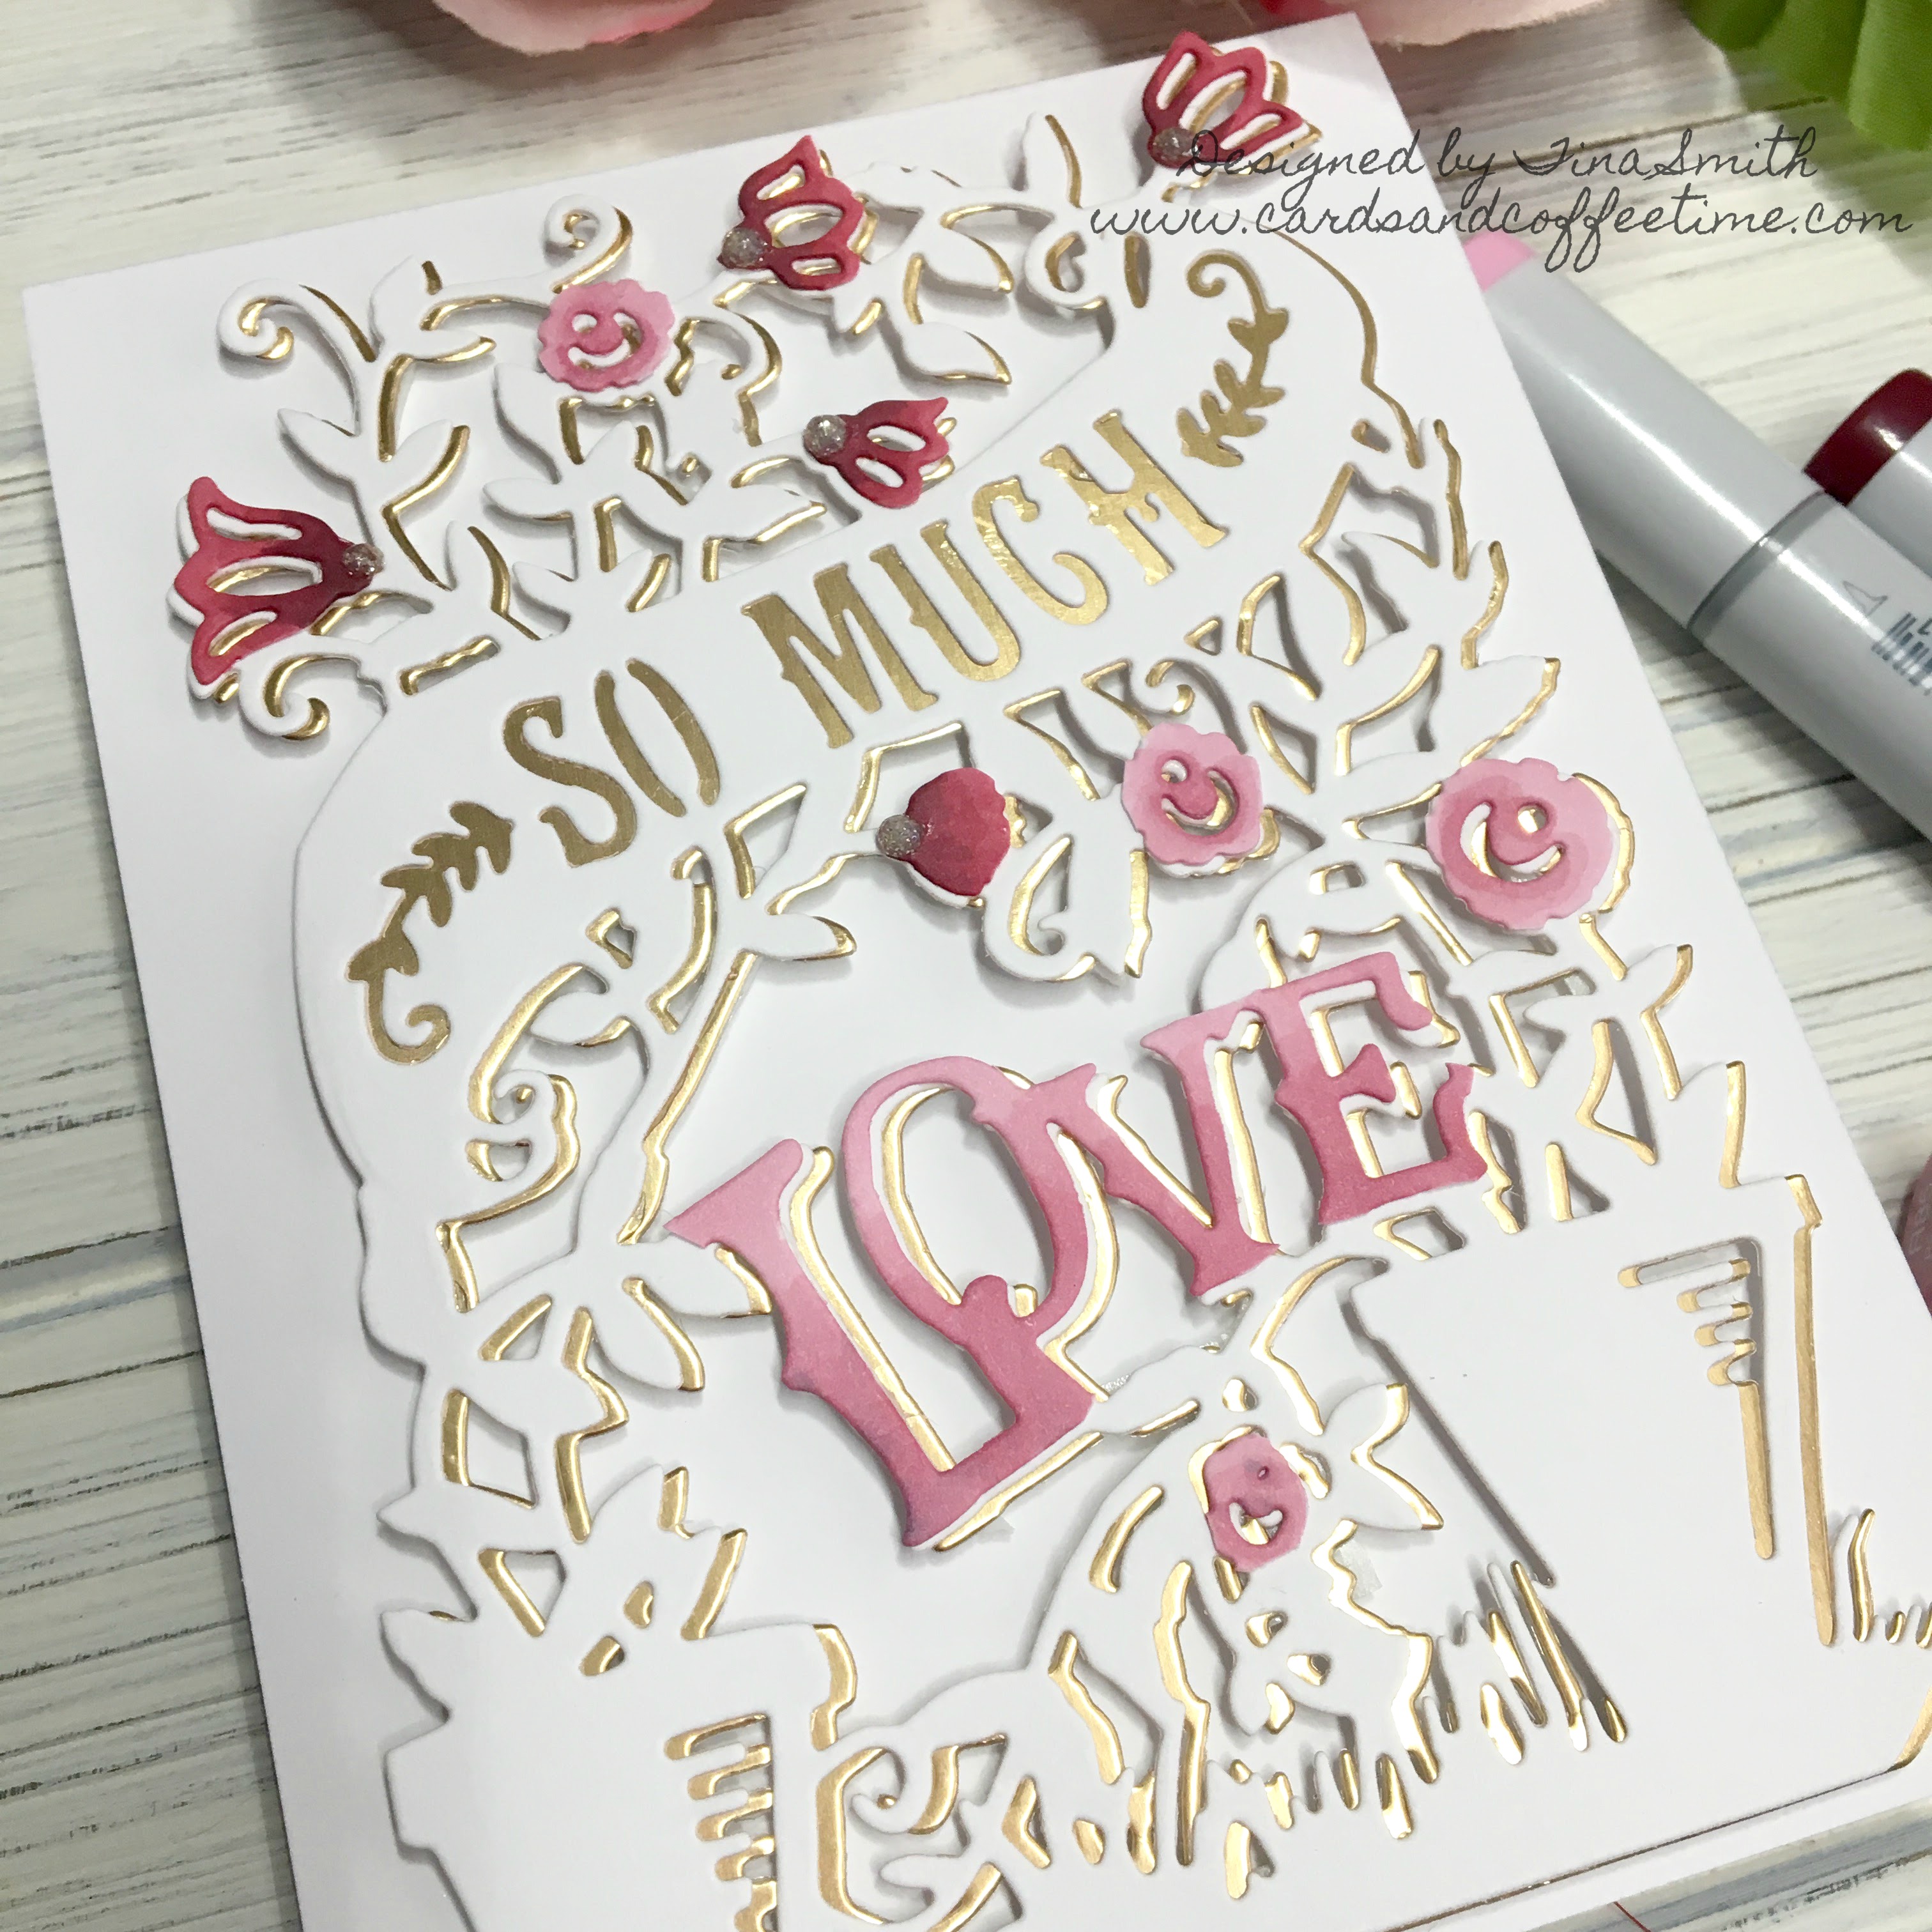 Designed by Tina Smith
www.cardsandcoffeetime.com
SO MUCH
LOVE